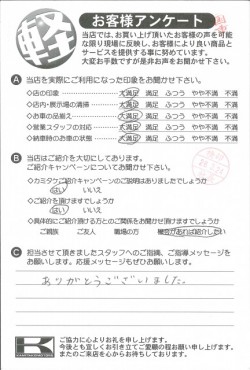 軽
お客様アンケート
当店では、お買い上げ頂いたお客様の声を可能
な限り現場に反映し、お客様により良い商品と
サービスを提供する事に努めています。
大変お手数ですが是非お声をお聞かせ下さい。
A 当店を実際にご利用になった印象をお聞かせ下さい。
◇店の印象 大満足 満足 ふつう やや不満 不満
◇店内・展示場の清掃 大満足 満足 ふつう やや不満 不満
◇お車の品揃え 大満足 満足 ふつう やや不満 不満
◇営業スタッフの対応 大満足 満足 ふつう やや不満 不満
◇納車時のお車の状態 大満足 満足 ふつう やや不満 不満
B 当店はご紹介を大切にしております。
ご紹介キャンペーンについてお聞かせ下さい。
◇カミタケご紹介キャンペーンのご説明はありましたでしょうか
はい いいえ
◇ご紹介を頂けますでしょうか
はい いいえ
◇具体的にご紹介頂ける方とのご関係をお聞かせ頂けますでしょうか
ご親族 ご友人 職場の方 機会があれば紹介したい
C 担当させて頂きましたスタッフへのご指摘、ご指導メッセージを
お願いします。応援メッセージもぜひお願いします。
ありがとうございました。
K
ご協力に心よりお礼を申し上げます。
今後とも宜しくお引き立てご愛顧の程お願い申し上げます。
またのご来店を心からお待ちしております。